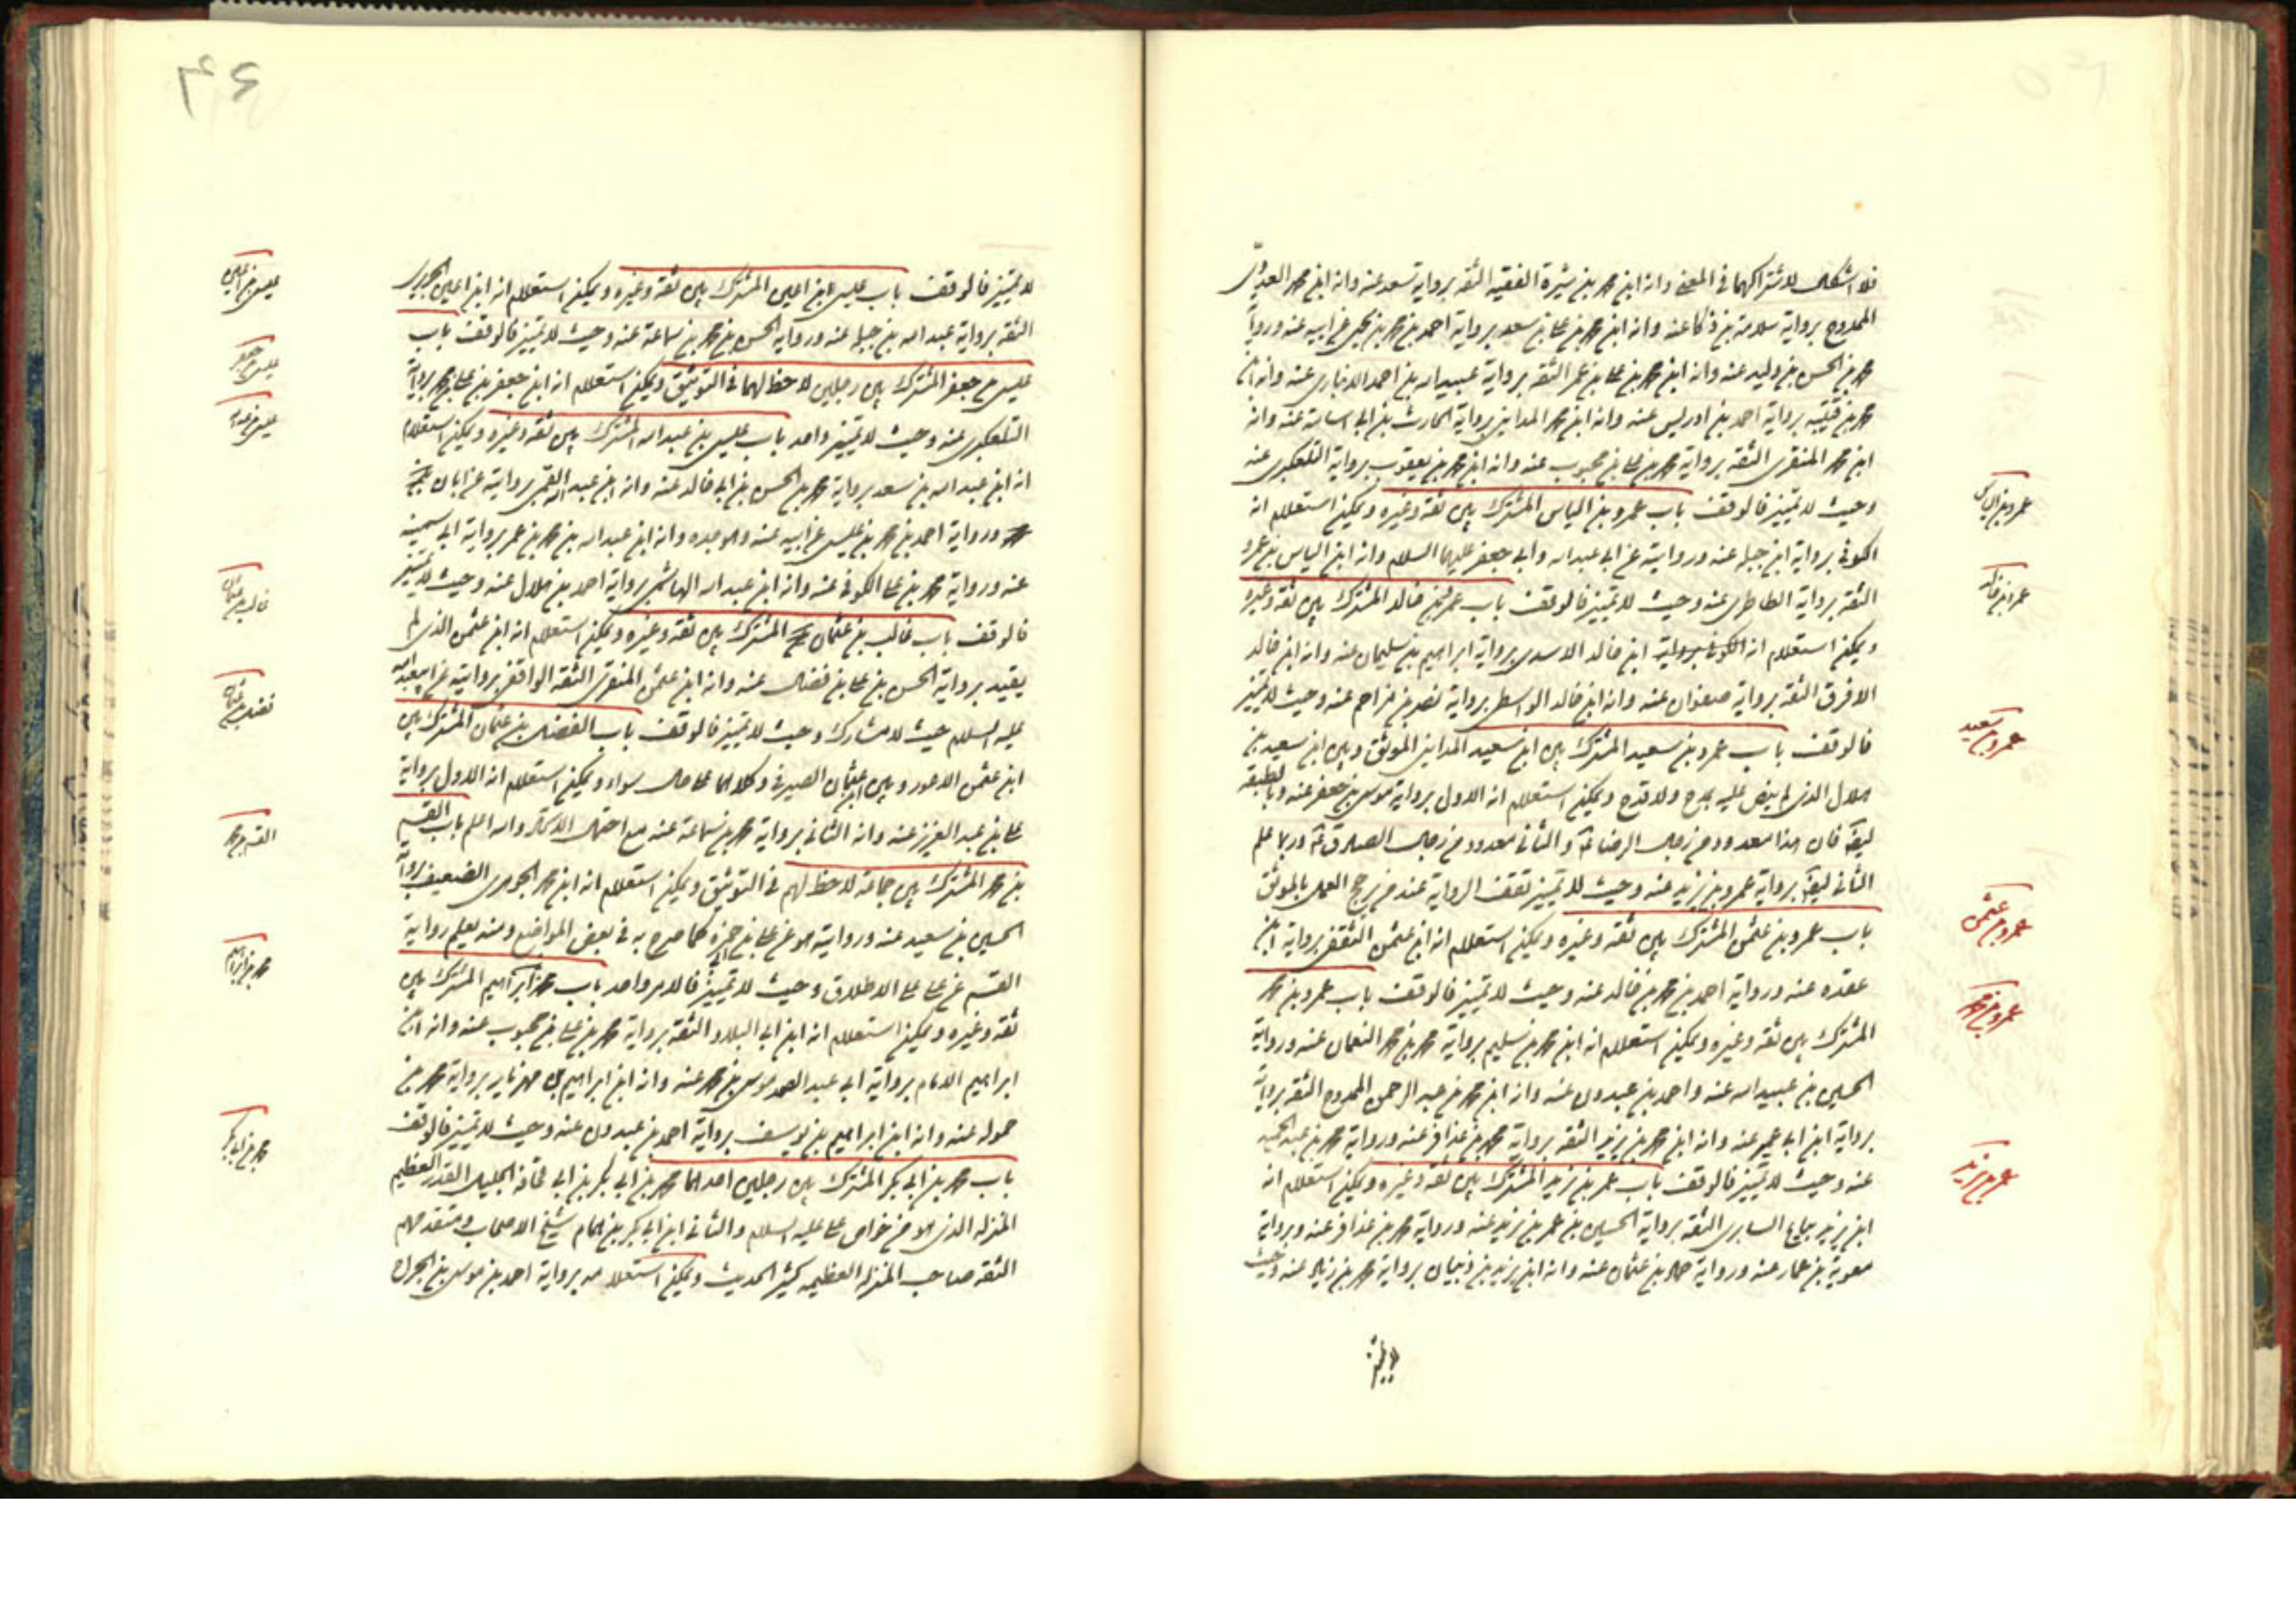 فلا اشكال لاشتراكهما في المعنى وانه ابن محمد بن شيرة الفقيه الثقة برواية سعد عنه وانه ابن محمد العدوى
الممدوح برواية سلامة بن ذكا عنه وانه ابن محمد بن علي بن سعد برواية احمد بن محمد بن يحيى عن ابيه عنه ورواية
محمد بن الحسن بن وليد عنه وانه ابن محمد بن علي بن عمر الثقة برواية عبيد الله بن احمد الانبارى عنه وانه ابن
محمد بن قتيبة برواية احمد بن ادريس عنه وانه ابن محمد المدايني برواية الحارث بن ابى اسامة عنه وانه
ابن محمد المنقرى الثقة برواية محمد بن علي بن محبوب عنه وانه ابن محمد بن يعقوب برواية التلعكبرى عنه
وحيث لا تمييز فالوقف باب عمرو بن الياس المشترك بين ثقة وغيره ويمكن استعلام انه
الكوفى برواية ابن جبلة عنه وروايته عن ابى عبد الله وابى جعفر عليهما السلام وانه ابن الياس بن عمرو
الثقة برواية الطاطرى عنه وحيث لا تمييز فالوقف باب عمرو بن خالد المشترك بين ثقة وغيره
ويمكن استعلام انه ابن خالد الاسدى برواية ابراهيم بن سليمان عنه وانه ابن خالد
الافرق الثقة برواية صفوان عنه وانه ابن خالد الواسطى برواية نصر بن مزاحم عنه وحيث لا تمييز
فالوقف باب عمرو بن سعيد المشترك بين ابن سعيد المدايني الموثق وبين ابن سعيد بن
هلال الذى لم ينص عليه بمدح ولا قدح ويمكن استعلام انه الاول برواية موسى بن جعفر عنه وبالطبقة
ايضا فان هذا معدود من رجال الرضا ع والثاني معدود من رجال الصادق ع وربما علم
الثاني ايضا برواية عمرو بن يزيد عنه وحيث لا تمييز تقف الرواية عند من يرجح العمل بالموثق
باب عمرو بن عثمن المشترك بين ثقة وغيره ويمكن استعلام انه ابن عثمن الثقفى برواية ابن
عقده عنه ورواية احمد بن محمد بن خالد عنه وحيث لا تمييز فالوقف باب عمرو بن محمد
المشترك بين ثقة وغيره ويمكن استعلام انه ابن محمد بن سليم برواية محمد بن محمد النعمان عنه ورواية
الحسين بن عبيد الله عنه واحمد بن عبدون عنه وانه ابن محمد بن عبد الرحمن الممدوح الثقة برواية
برواية ابن ابى عمير عنه وانه ابن محمد بن يزيد الثقة برواية محمد بن عذافر عنه ورواية محمد بن عبد الحميد
عنه وحيث لا تمييز فالوقف باب عمر بن يزيد المشترك بين ثقة وغيره ويمكن استعلام انه
ابن يزيد بياع السابرى الثقة برواية الحسين بن عمر بن يزيد عنه ورواية محمد بن عذافر عنه وبرواية
معوية بن عمار عنه ورواية حماد بن عثمان عنه وانه ابن يزيد بن ذبيان برواية محمد بن زياد عنه وحيث
لا تمييز
عمرو بن الياس
عمرو بن خالد
عمرو بن سعيد
عمرو بن عثمن
عمرو بن محمد
عمر بن يزيد
٤٦
لا تمييز فالوقف باب عيسى بن اعين المشترك بين ثقة وغيره ويمكن استعلام انه ابن اعين الجريرى
الثقة برواية عبد الله بن جبلة عنه ورواية الحسن بن محمد بن سماعة عنه وحيث لا تمييز فالوقف باب
عيسى بن جعفر المشترك بين رجلين لا حظ لهما في التوثيق ويمكن استعلام انه ابن جعفر بن علي بن محمد برواية
التلعكبرى عنه وحيث لا تمييز واحد باب عيسى بن عبد الله المشترك بين ثقة وغيره ويمكن استعلام
انه ابن عبد الله بن سعد برواية محمد بن الحسن بن ابى خالد عنه وانه ابن عبد الله القمى بروايته عن ابان
ورواية احمد بن محمد بن عيسى عن ابيه عنه وهو جده وانه ابن عبد الله بن محمد بن عمر برواية ابى سمينة
عنه ورواية محمد بن علي الكوفى عنه وانه ابن عبد الله الهاشمى برواية احمد بن هلال عنه وحيث لا تمييز
فالوقف باب غالب بن عثمان المشترك بين ثقة وغيره ويمكن استعلام انه ابن عثمن الذى لم
يقيد برواية الحسن بن علي بن فضال عنه وانه ابن عثمن المنقرى الثقة الواقفى بروايته عن ابى عبد الله
عليه السلام حيث لا مشارك وحيث لا تمييز فالوقف باب الفضل بن عثمان المشترك بين
ابن عثمن الاعور وبين ابن عثمان الصيرفى وكلاهما على حال سواء ويمكن استعلام انه الاول برواية
علي بن عبد العزيز عنه وانه الثاني برواية محمد بن سماعة عنه مع احتمال الاتحاد والله اعلم باب القسم
بن محمد المشترك بين جماعة لا حظ لهم في التوثيق ويمكن استعلام انه ابن محمد الجوهرى الضعيف برواية
الحسين بن سعيد عنه وروايته هو عن علي بن حمزة كما صرح به في بعض المواضع ومنه يعلم رواية
القسم عن علي على الاطلاق وحيث لا تمييز فالامر واحد باب محمد بن ابراهيم المشترك بين
ثقة وغيره ويمكن استعلام انه ابن ابى البلاد الثقة برواية محمد بن علي بن محبوب عنه وانه ابن
ابراهيم الامام برواية ابى عبد الصمد موسى بن محمد عنه وانه ابن ابراهيم بن مهزيار برواية محمد بن
حمويه عنه وانه ابن ابراهيم بن يوسف برواية احمد بن عبدون عنه وحيث لا تمييز فالوقف
باب محمد بن ابى بكر المشترك بين رجلين احدهما محمد بن ابى بكر بن ابى قحافة الجليل القدر العظيم
المنزلة الذى هو من خواص علي عليه السلام والثاني ابن ابى بكر بن همام شيخ الاصحاب ومتقدمهم
الثقة صاحب المنزلة العظيمة كثير الحديث ويمكن استعلامه برواية احمد بن موسى بن الجراح
عيسى بن اعين
عيسى بن جعفر
عيسى بن عبد الله
غالب بن عثمان
فضل بن عثمان
القسم بن محمد
محمد بن ابراهيم
محمد بن ابى بكر